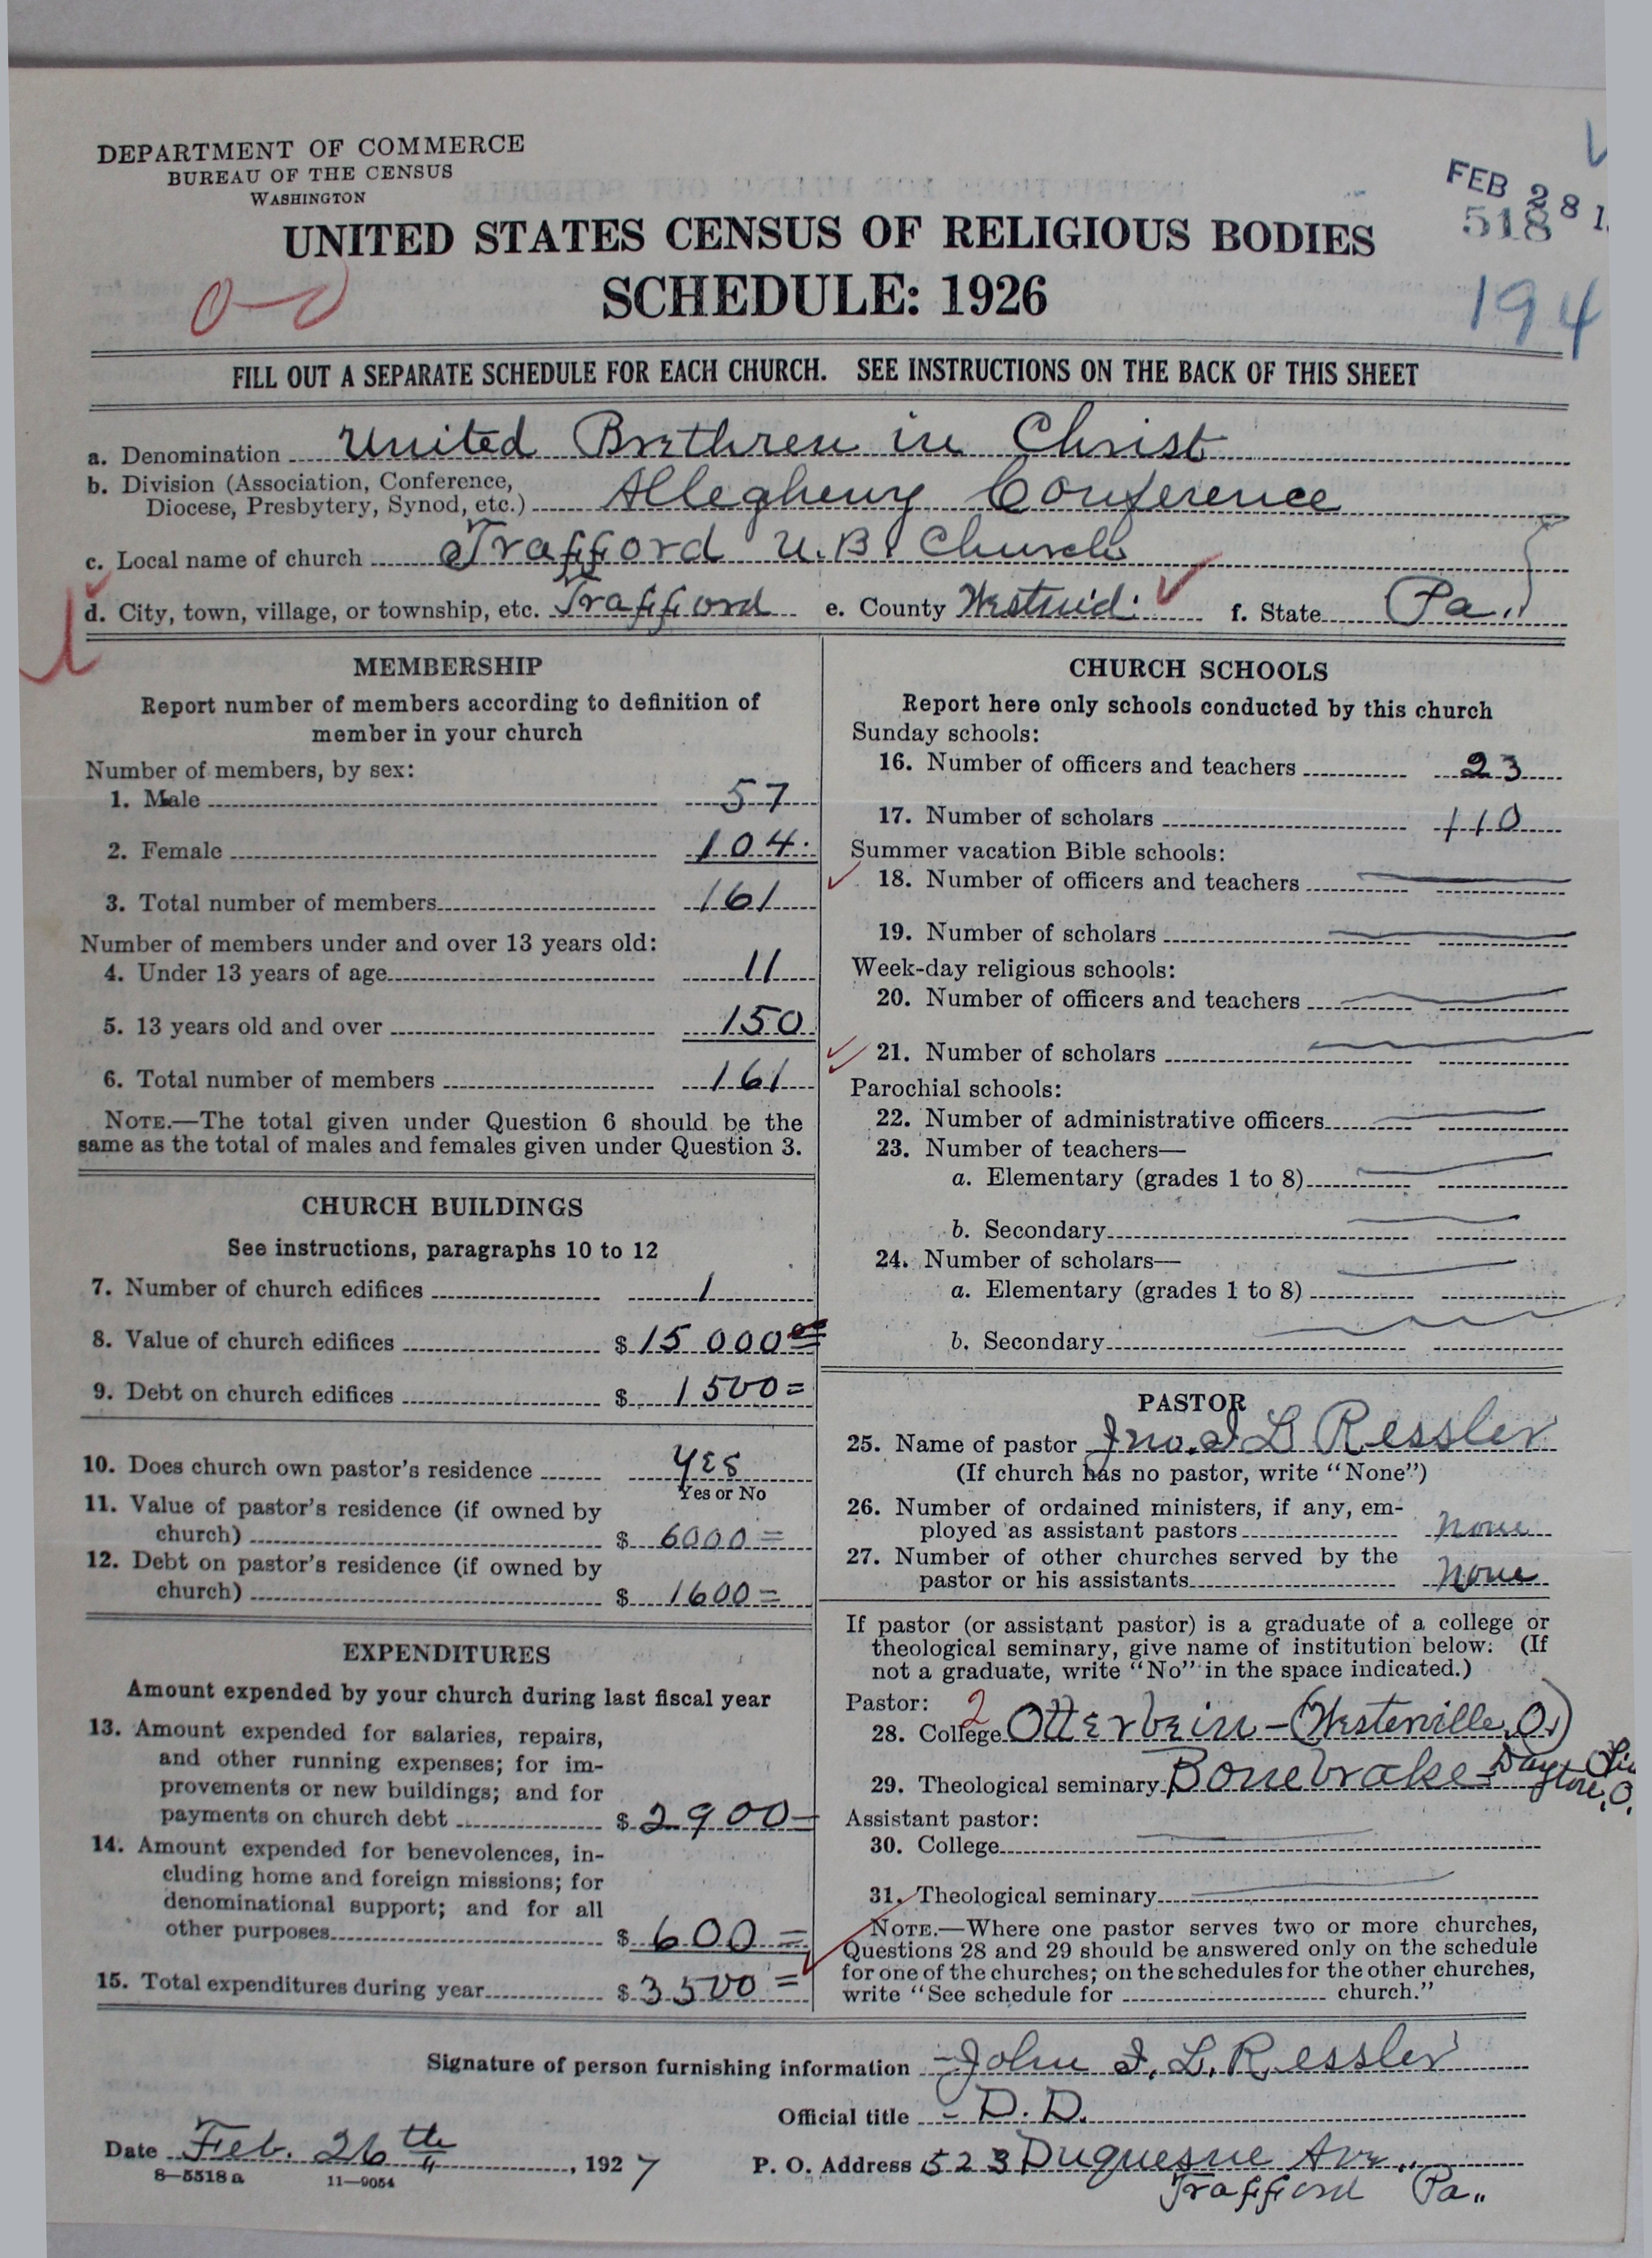 DEPARTMENT OF COMMERCE
BUREAU OF THE CENSUS
WASHINGTON
FEB 28 1
518
194
UNITED STATES CENSUS OF RELIGIOUS BODIES
SCHEDULE: 1926
FILL OUT A SEPARATE SCHEDULE FOR EACH CHURCH. SEE INSTRUCTIONS ON THE BACK OF THIS SHEET
a. Denomination United Brethren in Christ
b. Division (Association, Conference,
Diocese, Presbytery, Synod, etc.) Allegheny Conference
c. Local name of church Trafford U.B. Church
d. City, town, village, or township, etc. Trafford e. County f. State Pa.
MEMBERSHIP
Report number of members according to definition of
member in your church
Number of members, by sex:
1. Male 57
2. Female 104
3. Total number of members 161
Number of members under and over 13 years old:
4. Under 13 years of age 11
5. 13 years old and over 150
6. Total number of members 161
NOTE.—The total given under Question 6 should be the
same as the total of males and females given under Question 3.
CHURCH BUILDINGS
See instructions, paragraphs 10 to 12
7. Number of church edifices 1
8. Value of church edifices $ 15 000 00
9. Debt on church edifices $ 1500 =
10. Does church own pastor's residence Yes
Yes or No
11. Value of pastor's residence (if owned by
church) $ 6000 =
12. Debt on pastor's residence (if owned by
church) $ 1600 =
EXPENDITURES
Amount expended by your church during last fiscal year
13. Amount expended for salaries, repairs,
and other running expenses; for im-
provements or new buildings; and for
payments on church debt $ 2900 —
14. Amount expended for benevolences, in-
cluding home and foreign missions; for
denominational support; and for all
other purposes $ 600 =
15. Total expenditures during year $ 3500 =
CHURCH SCHOOLS
Report here only schools conducted by this church
Sunday schools:
16. Number of officers and teachers 23
17. Number of scholars 110
Summer vacation Bible schools:
18. Number of officers and teachers
19. Number of scholars
Week-day religious schools:
20. Number of officers and teachers
21. Number of scholars
Parochial schools:
22. Number of administrative officers
23. Number of teachers—
a. Elementary (grades 1 to 8)
b. Secondary
24. Number of scholars—
a. Elementary (grades 1 to 8)
b. Secondary
PASTOR
25. Name of pastor Jno. I L Ressler
(If church has no pastor, write "None")
26. Number of ordained ministers, if any, em-
ployed as assistant pastors none
27. Number of other churches served by the
pastor or his assistants none
If pastor (or assistant pastor) is a graduate of a college or
theological seminary, give name of institution below: (If
not a graduate, write "No" in the space indicated.)
Pastor: 2
28. College Otterbein – (Westerville, O.)
29. Theological seminary Bonebrake – Dayton, O.
Assistant pastor:
30. College
31. Theological seminary
NOTE.—Where one pastor serves two or more churches,
Questions 28 and 29 should be answered only on the schedule
for one of the churches; on the schedules for the other churches,
write "See schedule for church."
Signature of person furnishing information John I. L. Ressler
Official title – D.D.
Date Feb. 26th, 1927 P. O. Address 523 Duquesne Ave.,
8—5518 a 11—9054 Trafford Pa.